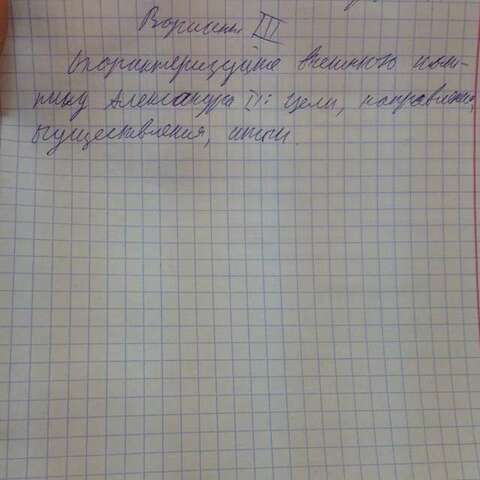 Вариант III
Охарактеризуйте внешнюю поли-
тику Александра II: цели, направления,
осуществления, итоги.